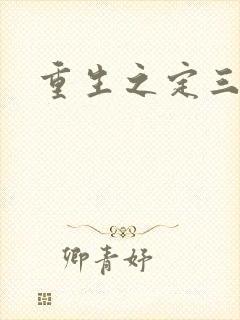 重生之定三
卿青妤